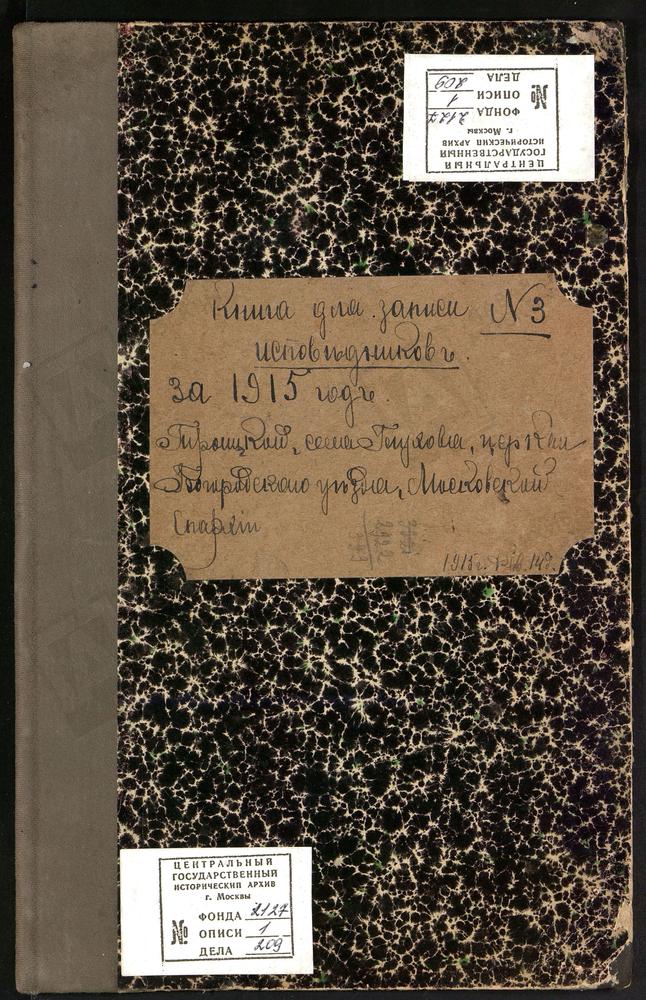 ЦЕНТРАЛЬНЫЙ
ГОСУДАРСТВЕННЫЙ
ИСТОРИЧЕСКИЙ АРХИВ
г. Москвы
№
ФОНДА 2127
ОПИСИ 1
ДЕЛА 209
Книга для записи №3
исповѣдниковъ.
за 1915 годъ.
Троицкой, села Глухова, церкви
Богородскаго уѣзда, Московской
Епархіи
1915 г.
ЦЕНТРАЛЬНЫЙ
ГОСУДАРСТВЕННЫЙ
ИСТОРИЧЕСКИЙ АРХИВ
г. Москвы
№
ФОНДА 2127
ОПИСИ 1
ДЕЛА 209